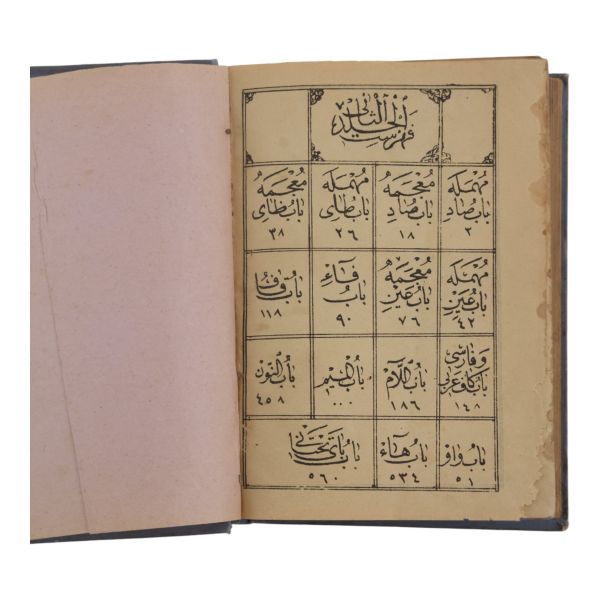 فهرست الجلد الثانى
مهمله
باب صاد
٢
معجمه
باب ضاد
١٨
مهمله
باب طاى
٢٦
معجمه
باب ظاى
٣٨
مهمله
باب عين
٤٢
معجمه
باب غين
٧٦
فاء
باب
٩٠
باب قاف
١١٨
وفارسى
باب كاف عربى
١٤٨
باب اللام
١٨٦
باب الميم
٠٠٠
باب النون
٤٥٨
باب واو
٥١
باب هاء
٥٣٤
باب ياى تحتانى
٥٦٠